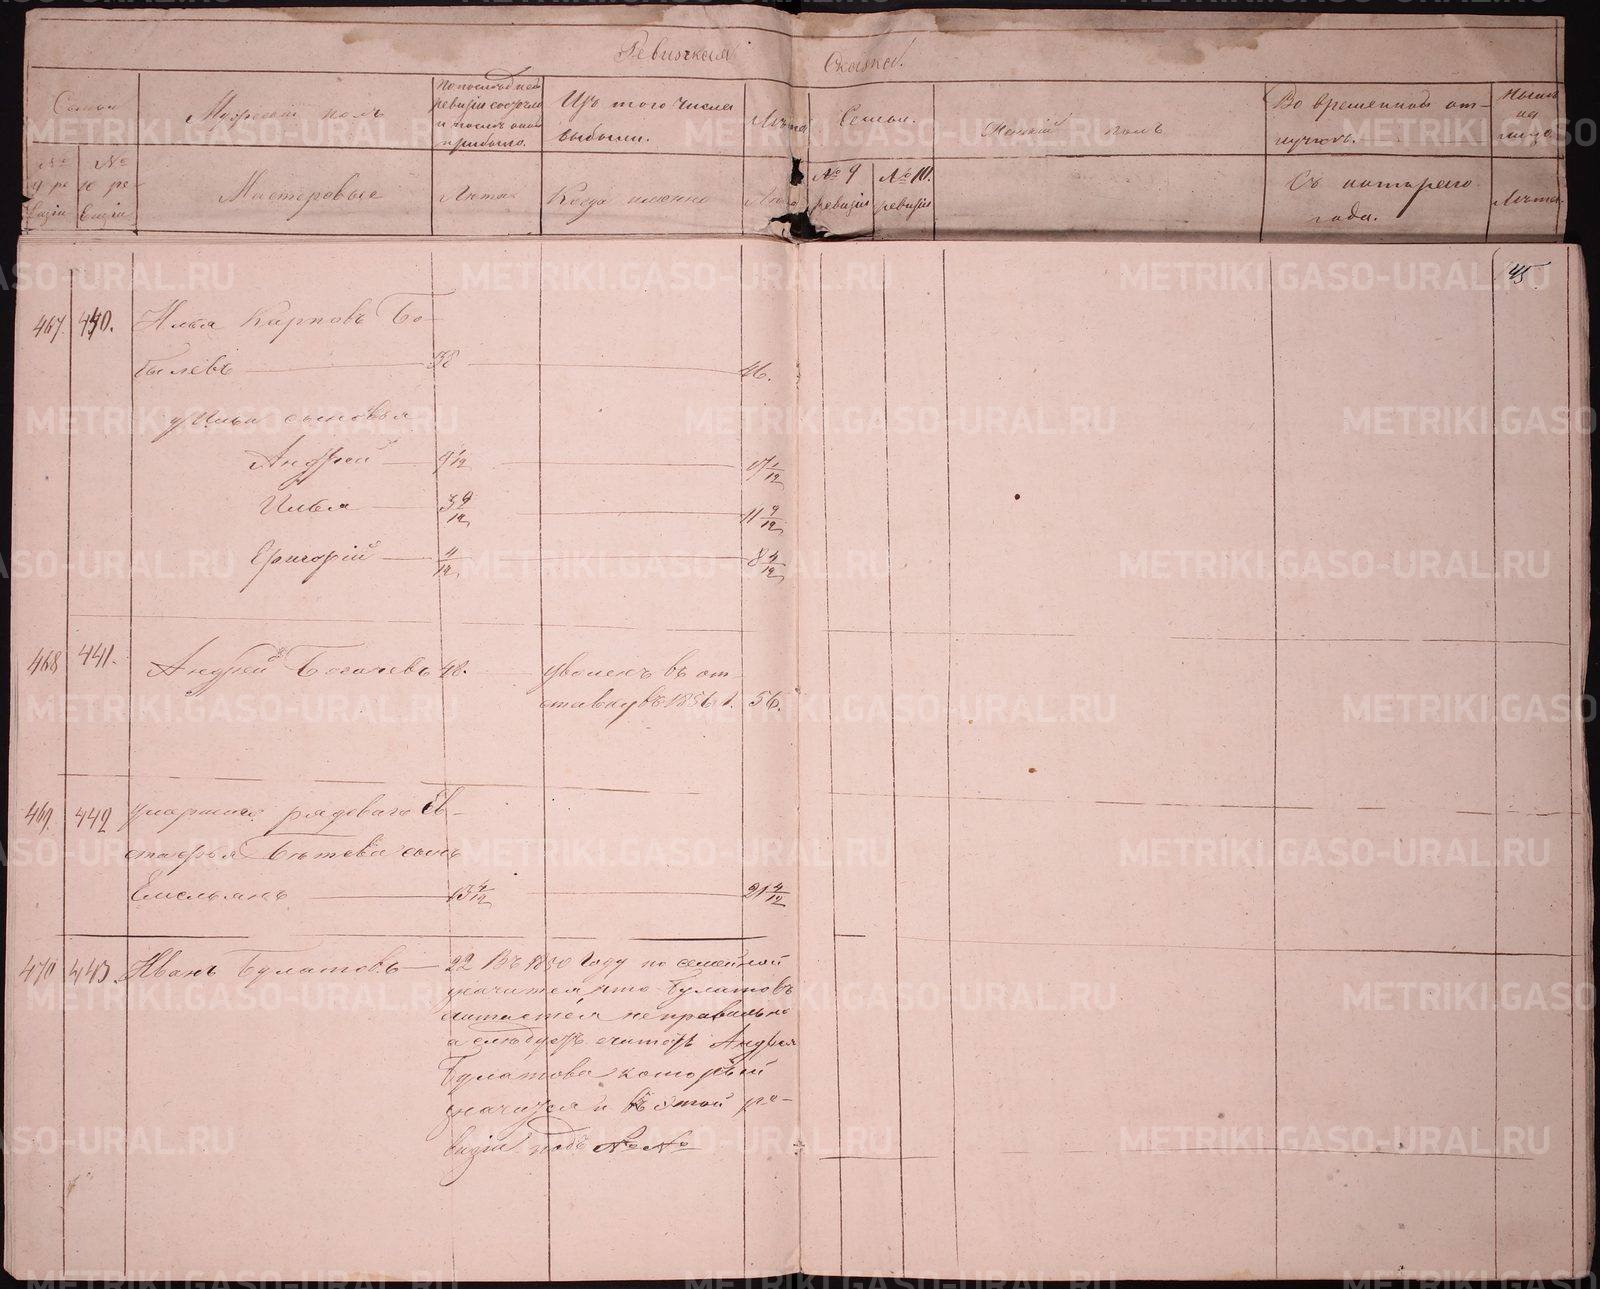 Ревизская Сказка.
Семьи
Мужеской полъ
По последней
ревизіи состояло
и послѣ оной
прибыло.
Изъ того числа
выбыли.
Лѣта
Семьи.
Женскій полъ
Во временной от-
лучкѣ.
Нынѣ
на
лицо
№ 9 ре-
визіи
№ 10 ре-
визіи
Мастеровые
Лѣта
Когда именно
Лѣта
№ 9
ревизіи
№ 10.
ревизіи
Съ котораго
года.
Лѣта.
45
467. 440. Илья Карповъ Бо-
былевъ 38 46.
у Ильи сыновья
Андрей 9 1/12 17 1/12
Илья 3 9/12 11 9/12
Григорій 4/12 8 4/12
468 441. Андрей Богачевъ 48. уволенъ въ от-
ставку въ 1856 г. 56.
469. 442 умершаго рядоваго Ев-
стафья Бытева сынъ
Емельянъ 13 4/12 21 4/12
470 443. Иванъ Булатовъ 22 Въ 1850 году по семейной
значится, что Булатовъ
считается неправильно
а слѣдуетъ считать Андрея
Булатова который
значится и въ этой ре-
визіи подъ №№
METRIKI.GASO-URAL.RU